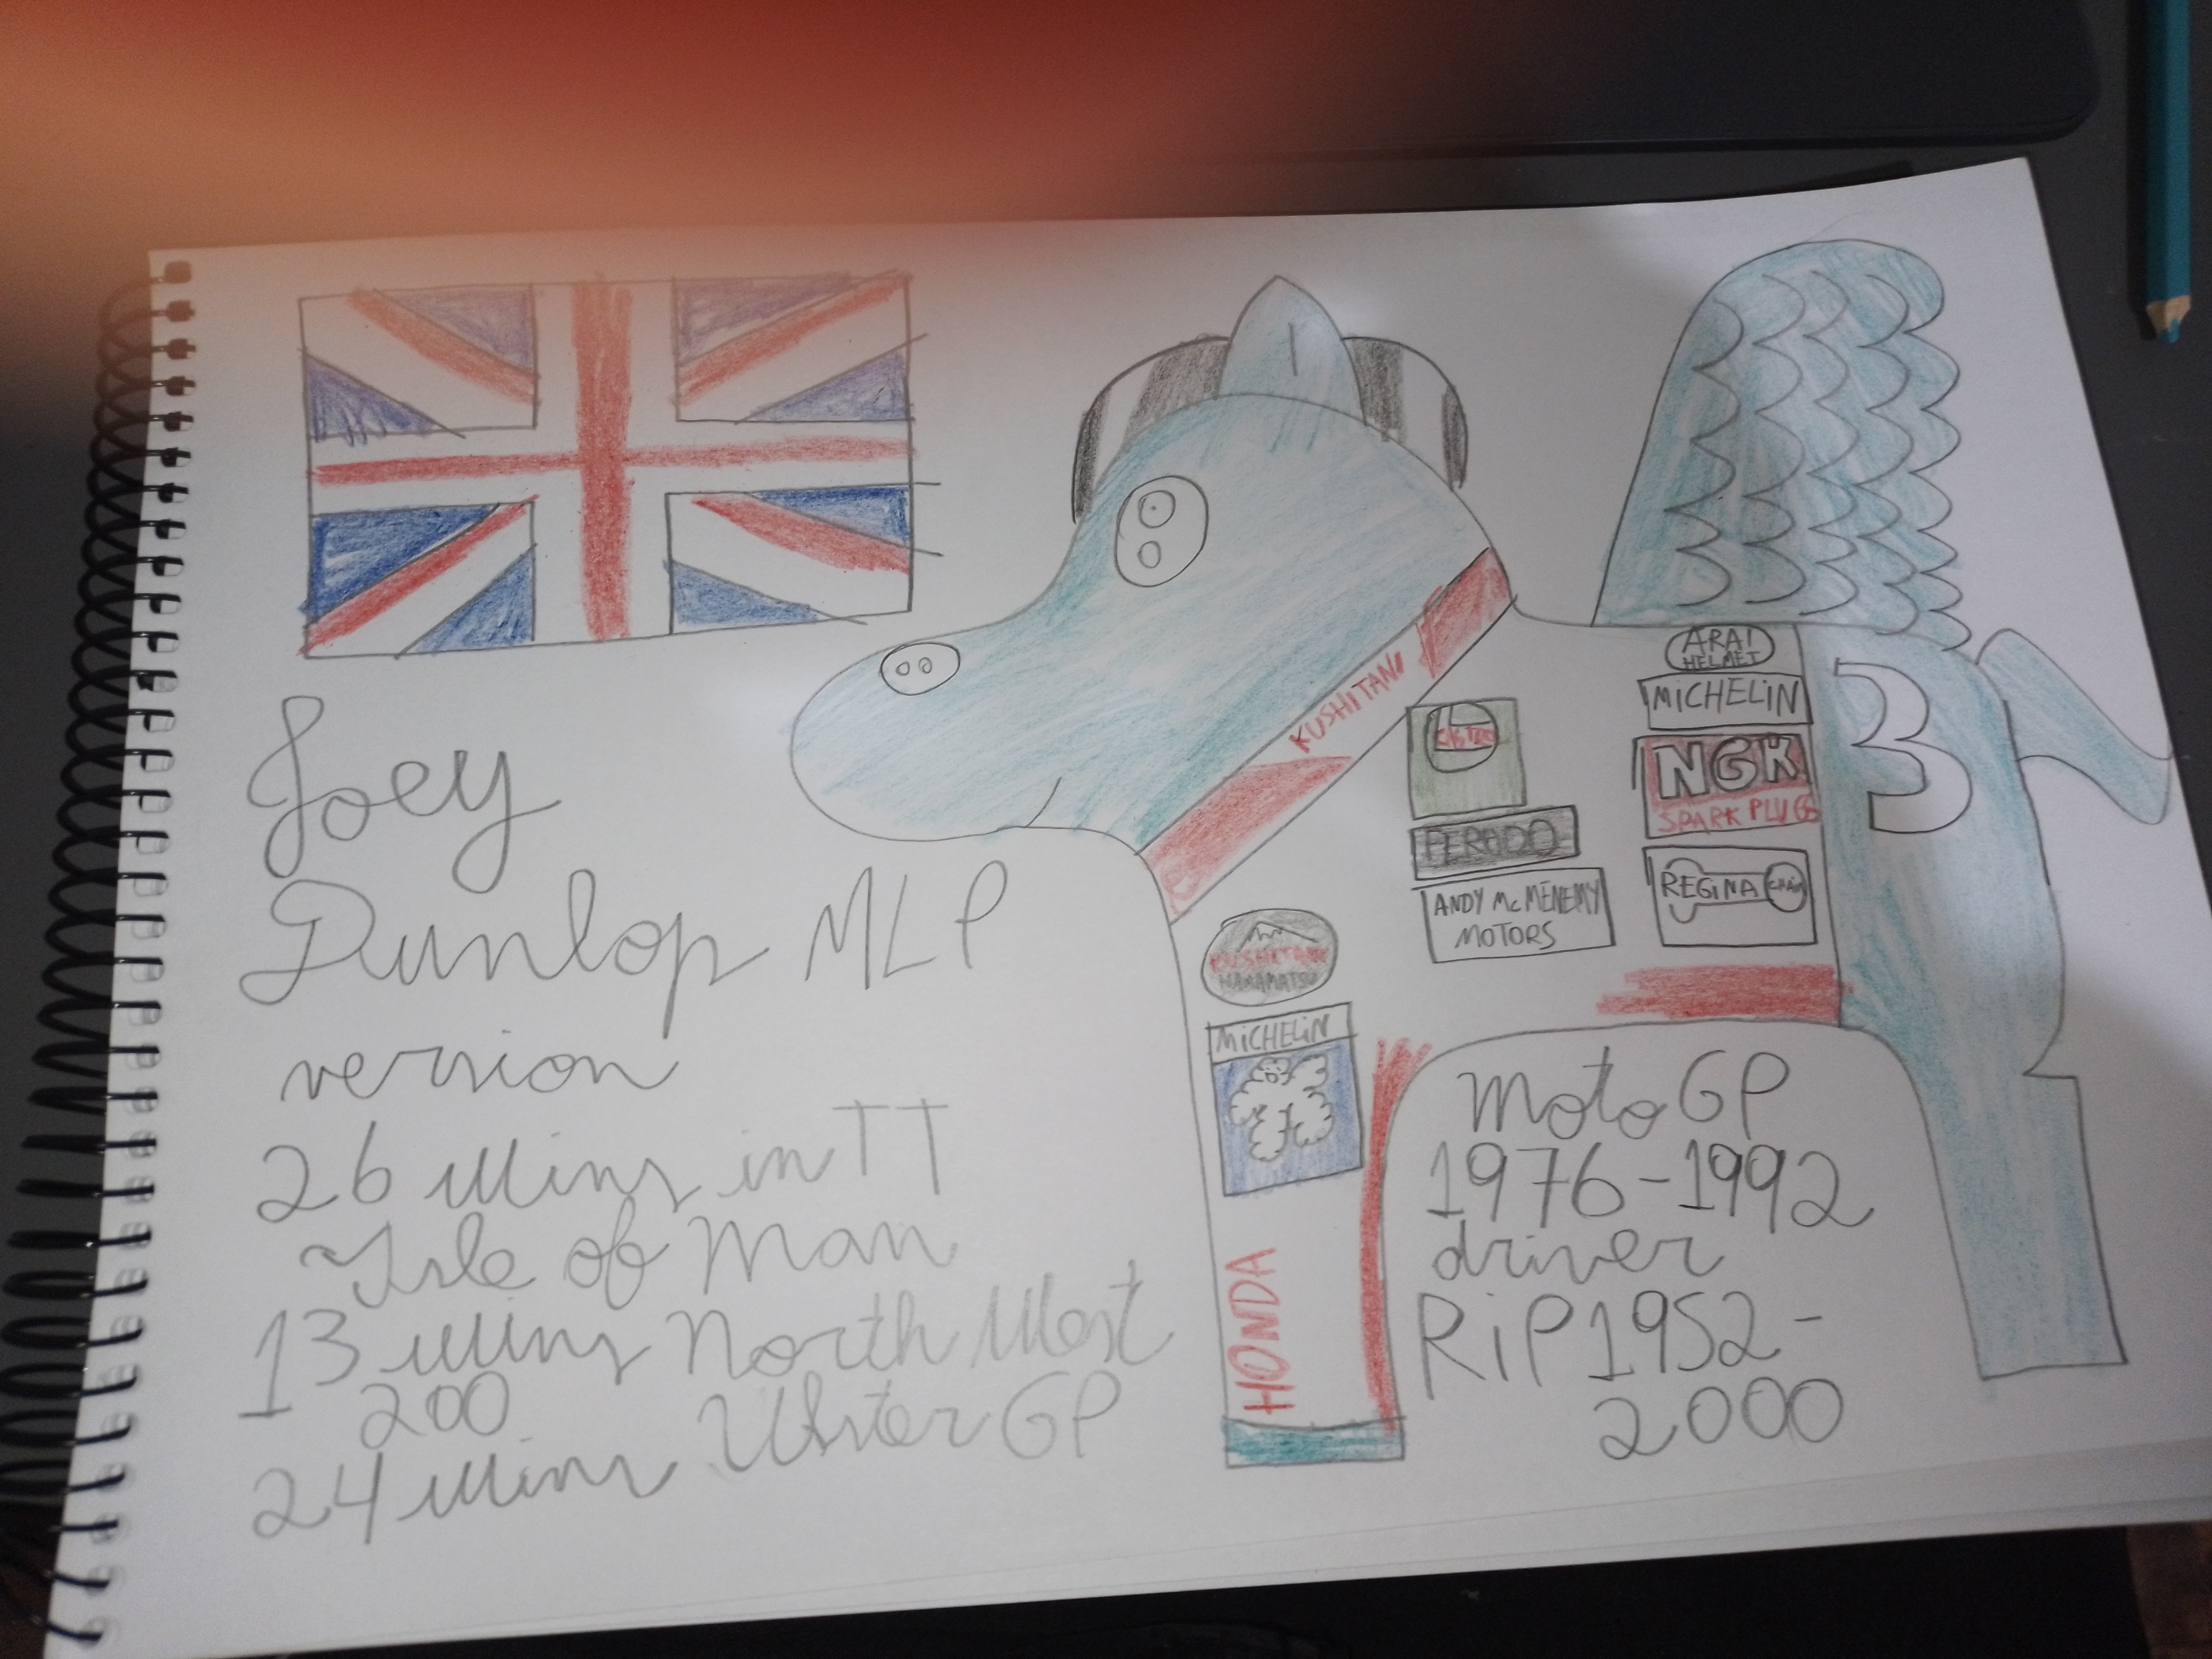 Joey
Dunlop MLP
version
26 Wins in TT
Isle of Man
13 Wins North West
200
24 Wins Ulster GP
KUSHITANI
ARAI
HELMET
MICHELIN
NGK
SPARK PLUGS
REGINA CHAIN
3
FERODO
ANDY McMENEMY
MOTORS
KUSHITANI
HAMAMATSU
MICHELIN
HONDA
Moto GP
1976-1992
driver
RiP 1952-
2000